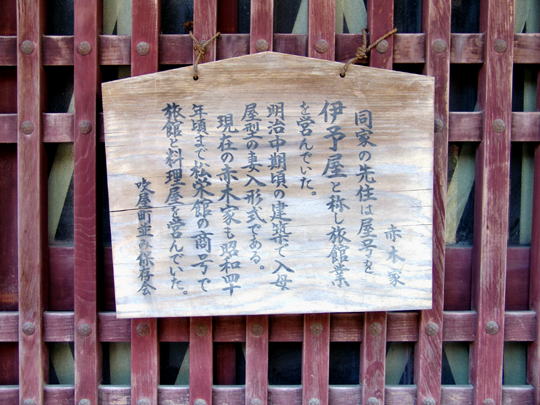 赤木家
同家の先住は屋号を
伊予屋と称し旅館業
を営んでいた。
明治中期頃の建築で入母
屋型の妻入形式である。
現在の赤木家も昭和四十
年頃まで松栄館の商号で
旅館と料理屋を営んでいた。
吹屋町並み保存会